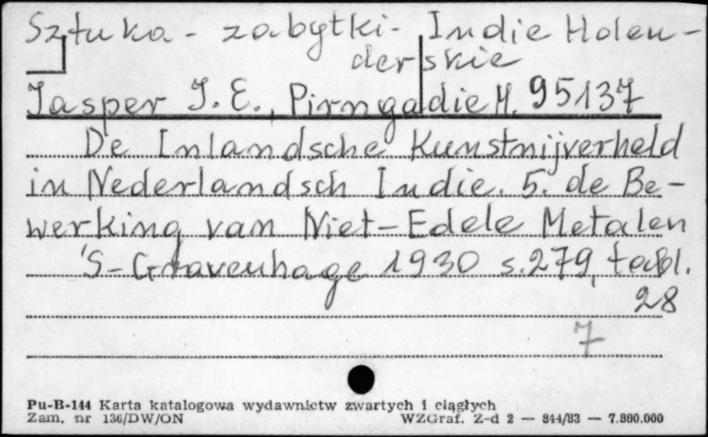 Sztuka - zabytki - Indie Holen-
derskie
Jasper J. E., Pirngadie M. 95137
De Inlandsche Kunstnijverheid
in Nederlandsch Indie. 5. de Be-
werking van Niet-Edele Metalen
'S-Gravenhage 1930 s. 279, tabl.
28
7
Pu-B-144 Karta katalogowa wydawnictw zwartych i ciągłych
Zam. nr 136/DW/ON WZGraf. Z-d 2 — 844/83 — 7.800.000